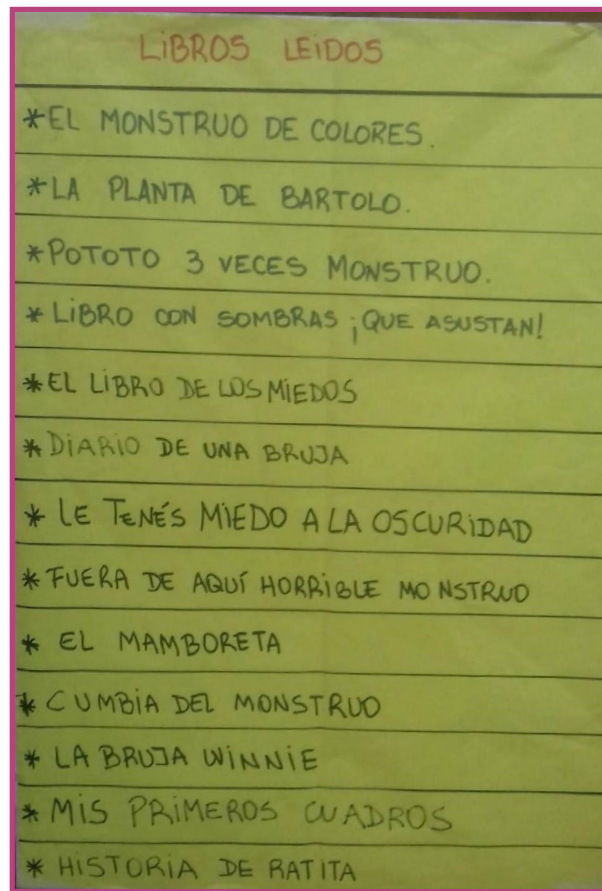 LiBROS LEiDOS
*EL MONSTRUO DE COLORES.
*LA PLANTA DE BARTOLO.
*POTOTO 3 VECES MONSTRUO.
*LiBRO CON SOMBRAS ¡QUE ASUSTAN!
*EL LiBRO DE LOS MiEDOS
*DiARiO DE UNA BRUJA
*LE TENÉS MiEDO A LA OSCURiDAD
*FUERA DE AQUÍ HORRiBLE MONSTRUO
*EL MAMBORETA
*CUMBiA DEL MONSTRUO
*LA BRUJA WiNNiE
*MiS PRiMEROS CUADROS
*HiSTORiA DE RATiTA